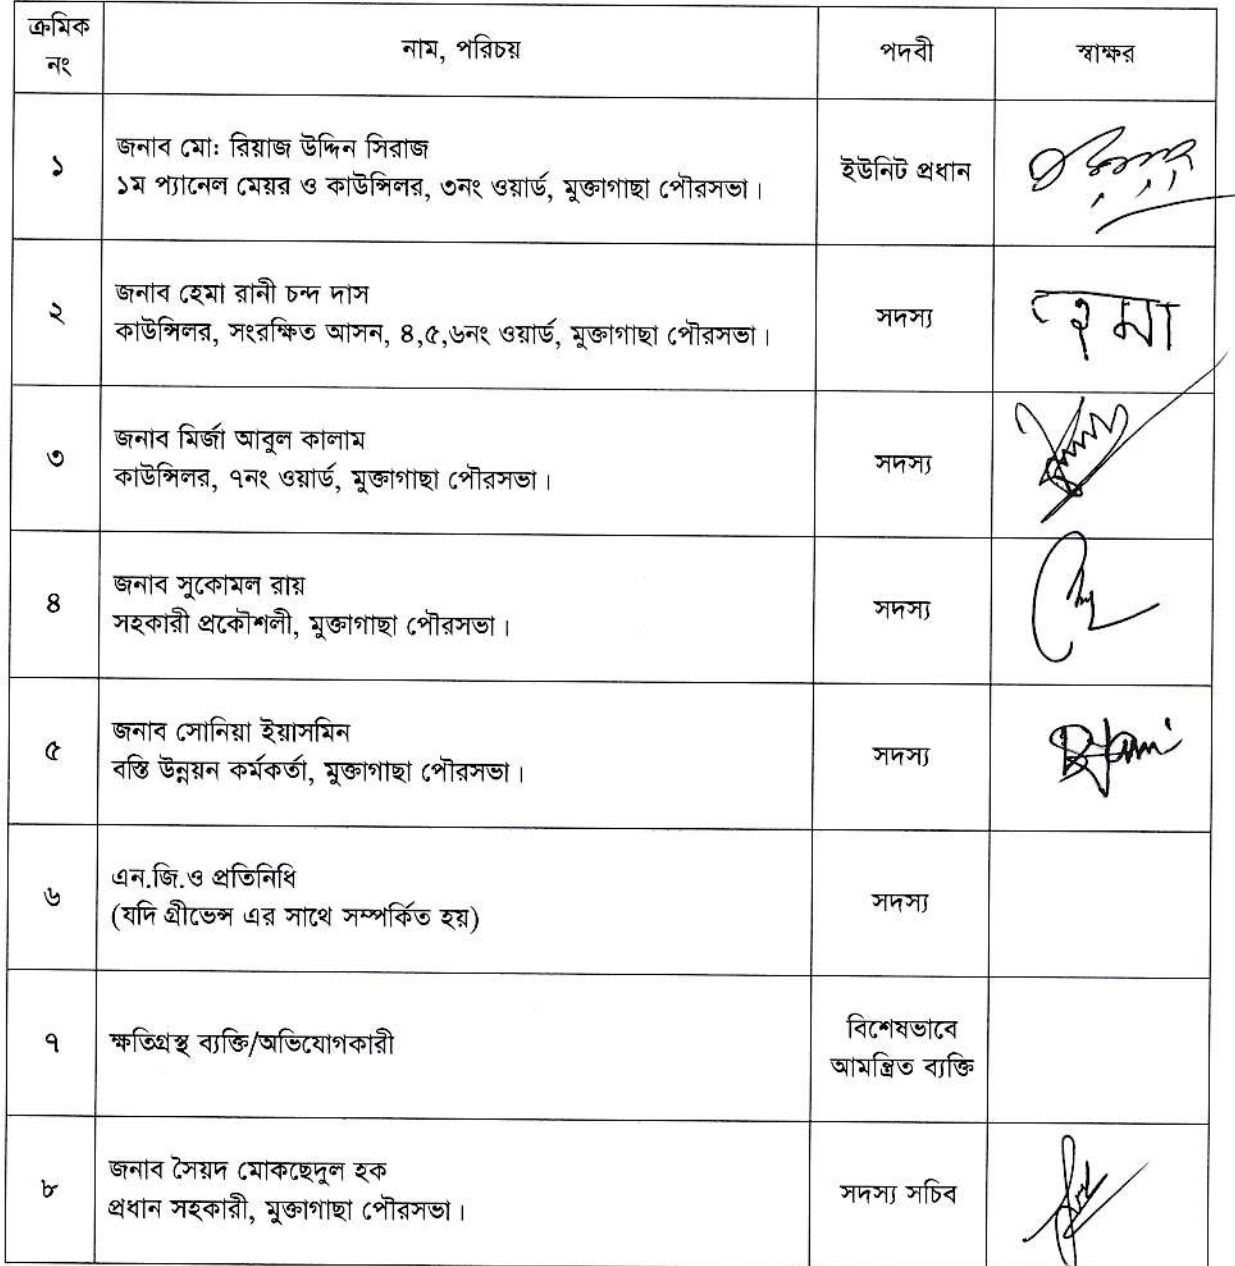 ক্রমিক
নং
নাম, পরিচয়
পদবী
স্বাক্ষর
১
জনাব মো: রিয়াজ উদ্দিন সিরাজ
১ম প্যানেল মেয়র ও কাউন্সিলর, ৩নং ওয়ার্ড, মুক্তাগাছা পৌরসভা।
ইউনিট প্রধান
২
জনাব হেমা রানী চন্দ দাস
কাউন্সিলর, সংরক্ষিত আসন, ৪,৫,৬নং ওয়ার্ড, মুক্তাগাছা পৌরসভা।
সদস্য
হেমা
৩
জনাব মির্জা আবুল কালাম
কাউন্সিলর, ৭নং ওয়ার্ড, মুক্তাগাছা পৌরসভা।
সদস্য
৪
জনাব সুকোমল রায়
সহকারী প্রকৌশলী, মুক্তাগাছা পৌরসভা।
সদস্য
৫
জনাব সোনিয়া ইয়াসমিন
বস্তি উন্নয়ন কর্মকর্তা, মুক্তাগাছা পৌরসভা।
সদস্য
৬
এন.জি.ও প্রতিনিধি
(যদি গ্রীভেন্স এর সাথে সম্পর্কিত হয়)
সদস্য
৭
ক্ষতিগ্রস্থ ব্যক্তি/অভিযোগকারী
বিশেষভাবে
আমন্ত্রিত ব্যক্তি
৮
জনাব সৈয়দ মোকছেদুল হক
প্রধান সহকারী, মুক্তাগাছা পৌরসভা।
সদস্য সচিব